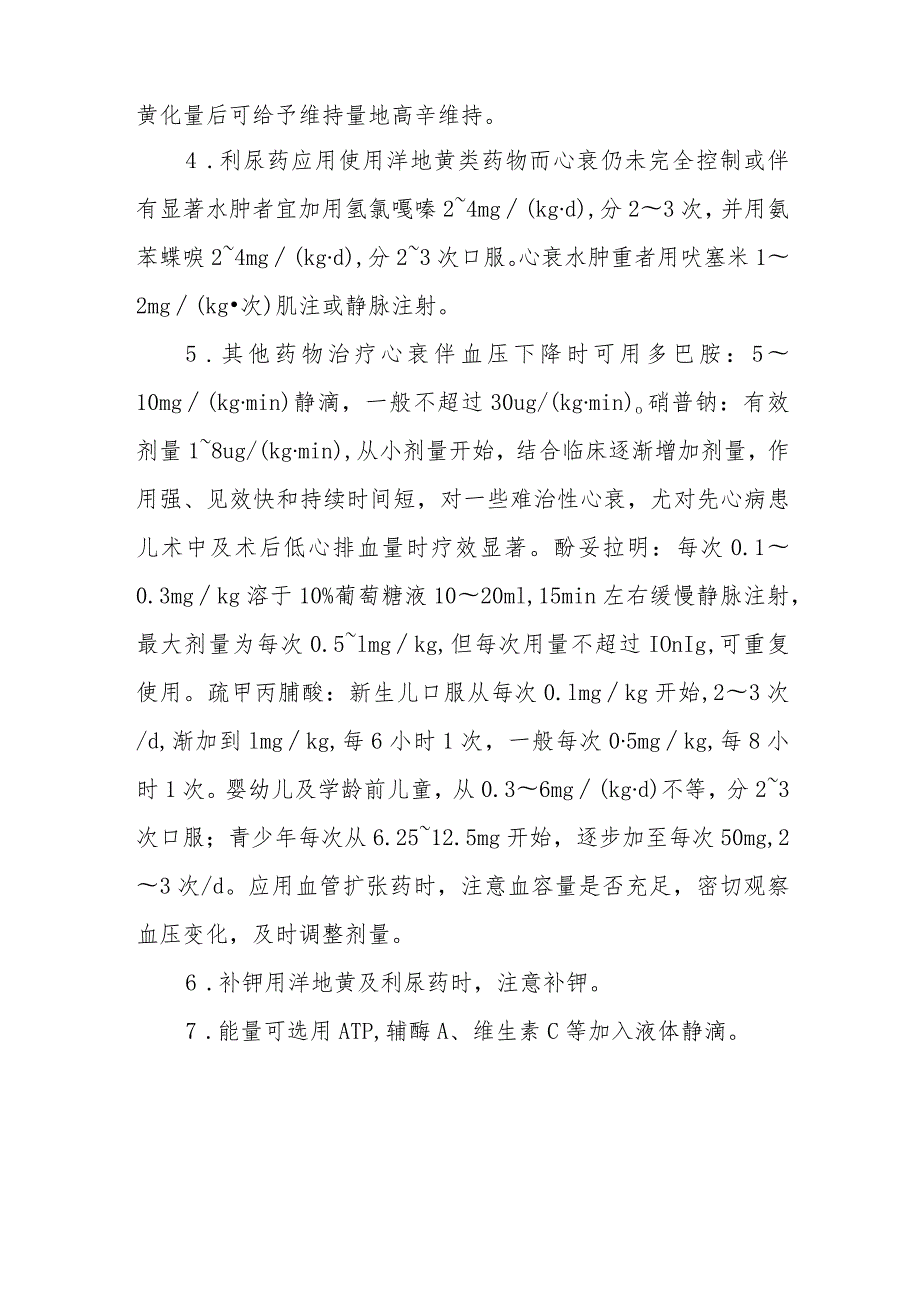 黄化量后可给予维持量地高辛维持。
4.利尿药应用使用洋地黄类药物而心衰仍未完全控制或伴
有显著水肿者宜加用氢氯嘎嗪2~4mg／(kg·d),分2～3次，并用氨
苯蝶唳2~4mg／(kg·d),分2~3次口服。心衰水肿重者用吠塞米1～
2mg／(kg•次)肌注或静脉注射。
5.其他药物治疗心衰伴血压下降时可用多巴胺：5～
10mg／(kg·min)静滴，一般不超过30ug/(kg·min)。硝普钠：有效
剂量1~8ug/(kg·min),从小剂量开始，结合临床逐渐增加剂量，作
用强、见效快和持续时间短，对一些难治性心衰，尤对先心病患
儿术中及术后低心排血量时疗效显著。酚妥拉明：每次0.1～
0.3mg／kg溶于10%葡萄糖液10～20ml,15min左右缓慢静脉注射，
最大剂量为每次0.5~lmg／kg,但每次用量不超过IOnIg,可重复
使用。疏甲丙脯酸：新生儿口服从每次0.lmg／kg开始,2～3次
/d,渐加到lmg／kg,每6小时1次，一般每次0·5mg／kg,每8小
时1次。婴幼儿及学龄前儿童，从0.3～6mg／(kg·d)不等，分2~3
次口服；青少年每次从6.25~12.5mg开始，逐步加至每次50mg,2
～3次/d。应用血管扩张药时，注意血容量是否充足，密切观察
血压变化，及时调整剂量。
6.补钾用洋地黄及利尿药时，注意补钾。
7.能量可选用ATP,辅酶A、维生素C等加入液体静滴。